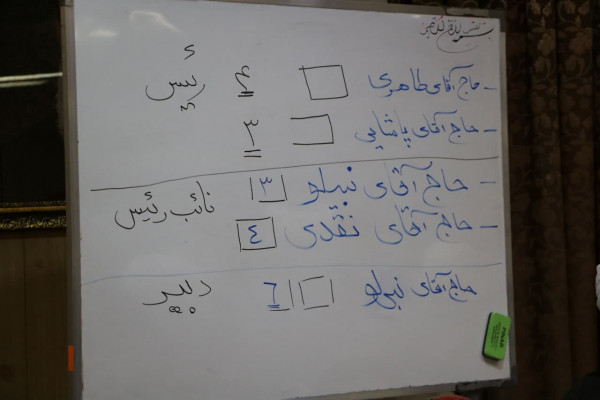 بسم الله الرحمن الرحیم
- حاج آقای طاهری □ ۴ رئیس
- حاج آقای پاشایی □ ۳
- حاج آقای نبیلو ۳ نائب رئیس
- حاج آقای نقدی ٤
حاج آقای نبیلو □ ٦ دبیر